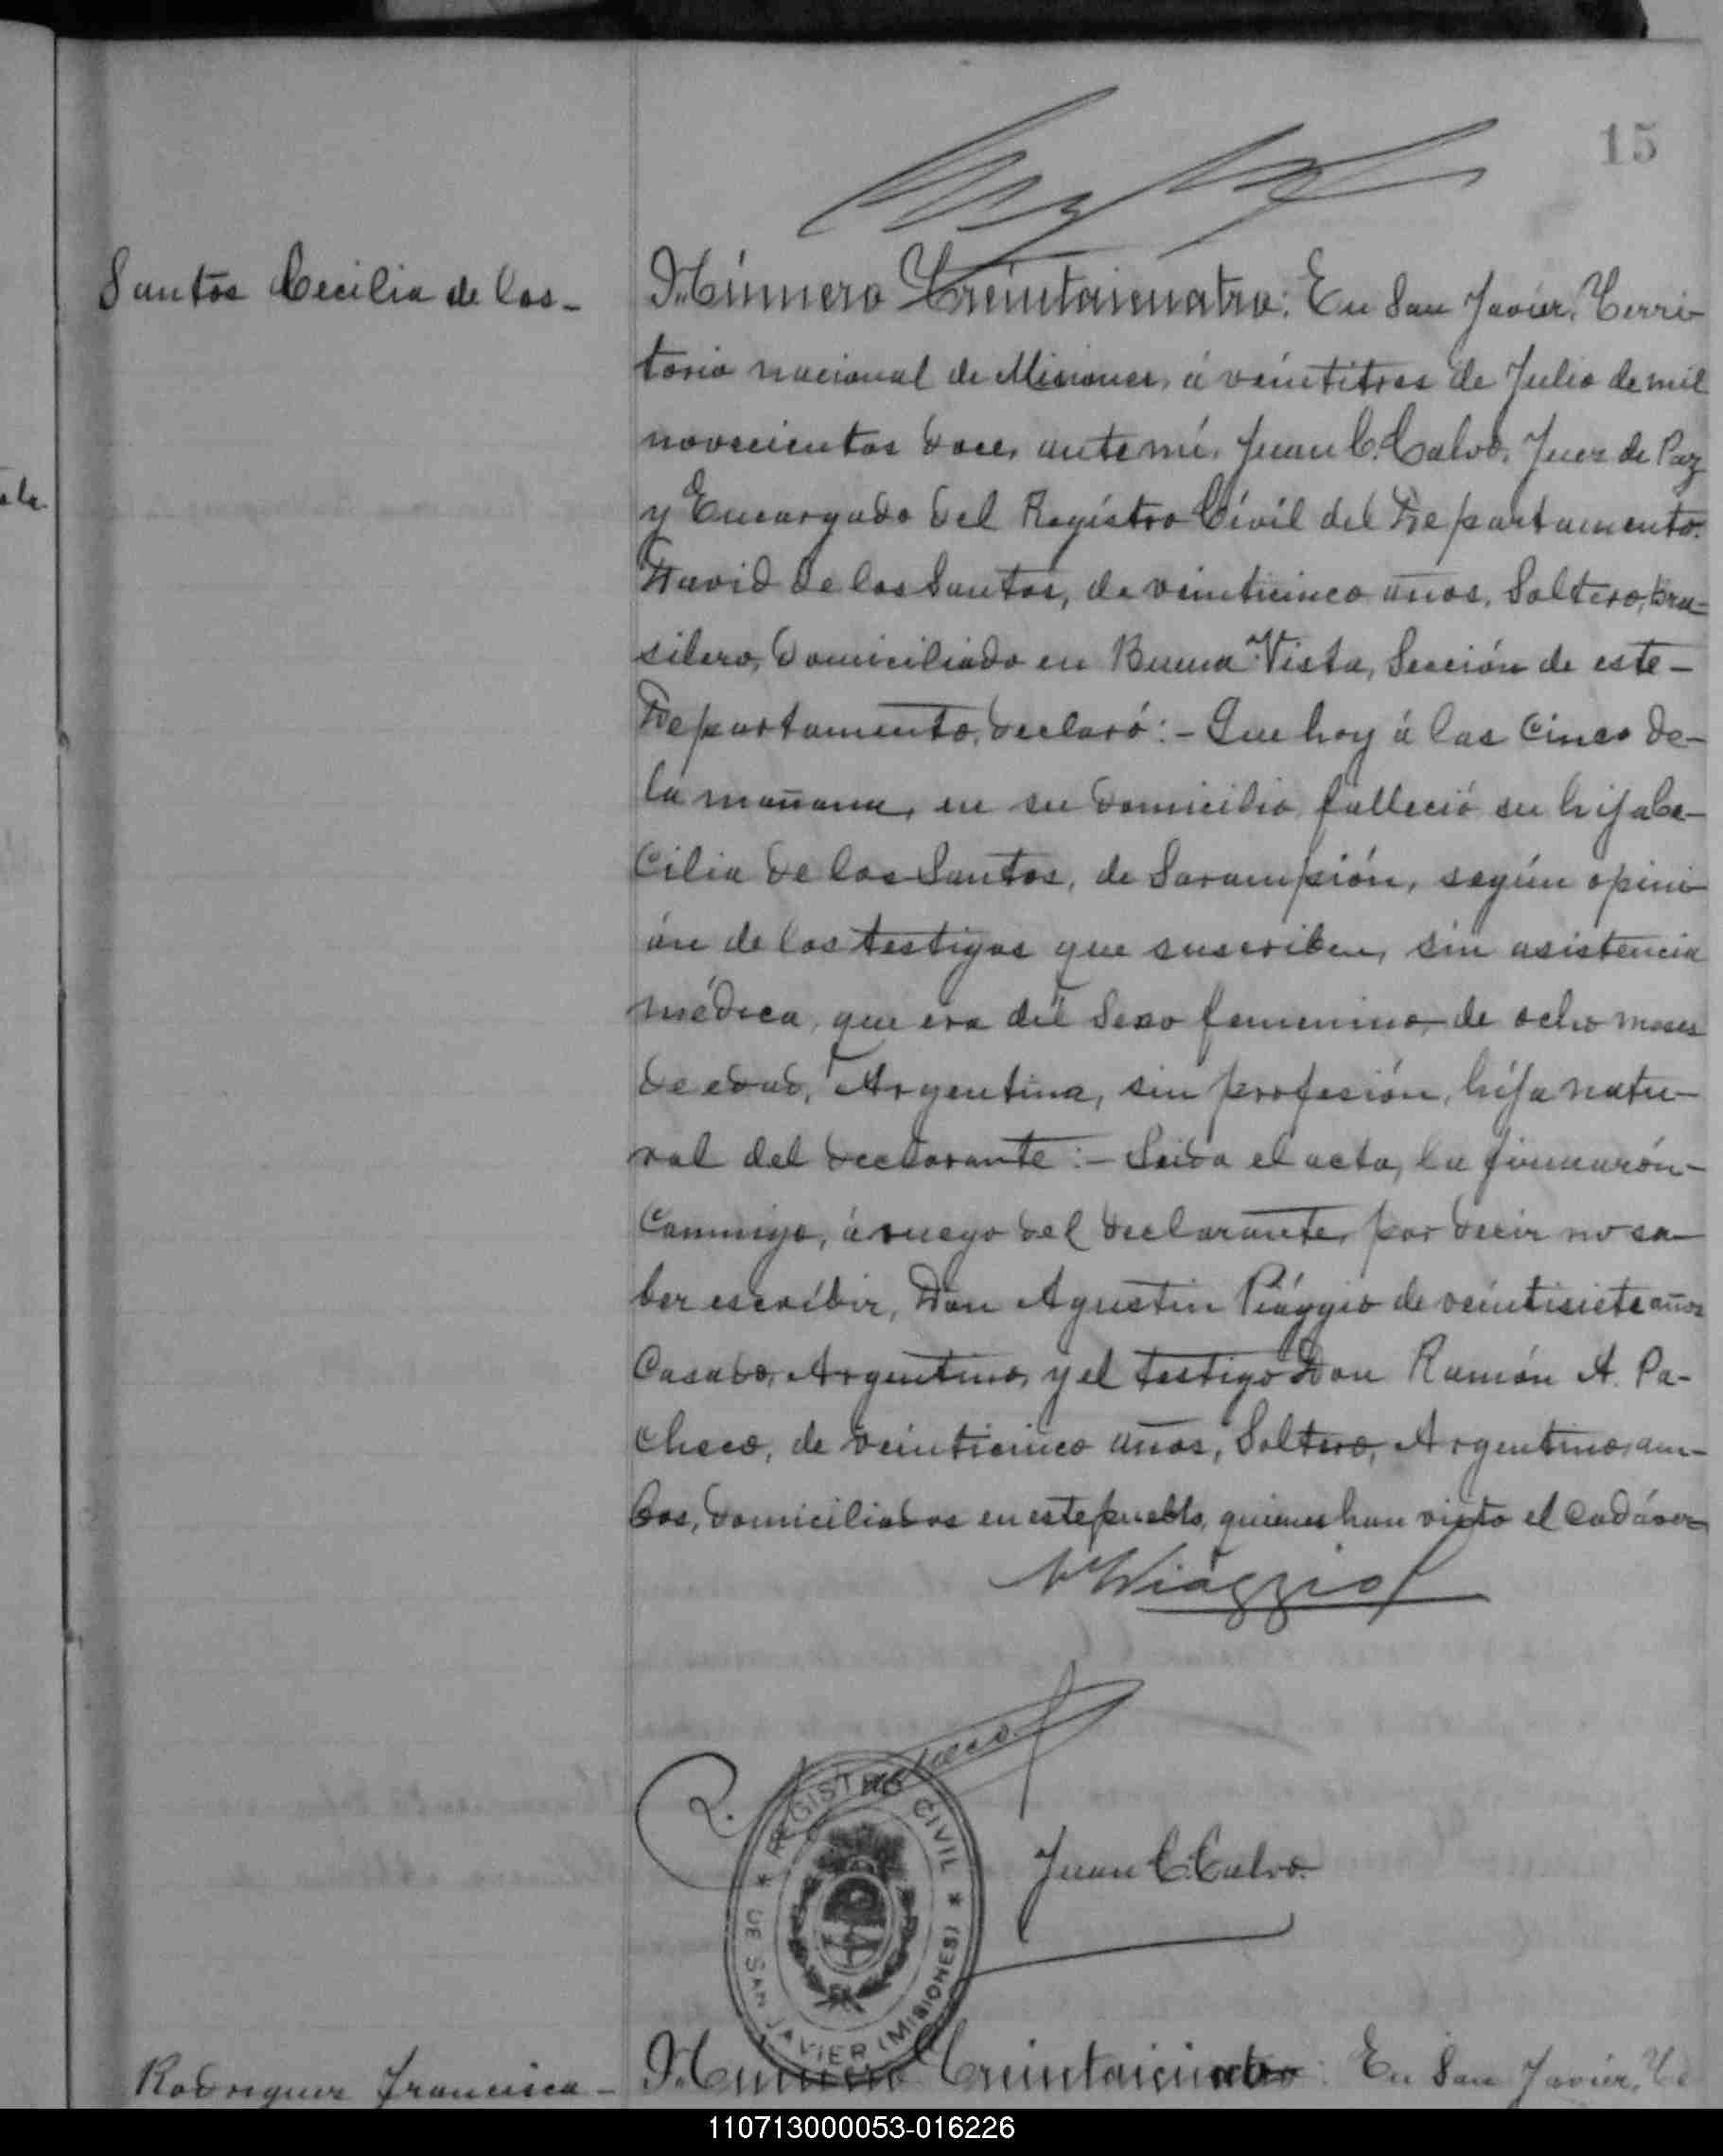 15
Santos Cecilia de los-
Número Treintaicuatro: En San Javier, Terri-
torio nacional de Misiones, á veintitres de Julio de mil
novecientos doce, ante mí, Juan C. Calvo, Juez de Paz
y Encargado del Registro Civil del Departamento.
David de los Santos, de veinticinco años, Soltero, Bra-
silero, domiciliado en Buena Vista, Sección de este-
Departamento, declaró:- Que hoy á las cinco de-
la mañana, en su domicilio falleció su hija Ce-
cilia de los Santos, de Sarampión, según opini-
ón de los testigos que suscriben, sin asistencia
médica, que era del Sexo femenino, de ocho meses
de edad, Argentina, sin profesión, hija natu-
ral del declarante:- Leida el acta, la firmarón-
Conmigo, á ruego del declarante, por decir no sa-
ber escribir, Don Agustin Piággio de veintisiete años
Casado, Argentino, y el testigo Don Ramón A. Pa-
checo, de veinticinco años, Soltero, Argentino, am-
bos, domiciliados en este pueblo, quienes han visto el cadáver-
A Piaggio
R. Pacheco
REGISTRO CIVIL
* DE SAN JAVIER (MISIONES) *
Juan C. Calvo.
Rodriguez Francisca-
Número Treintaicinco: En San Javier, Te
110713000053-016226